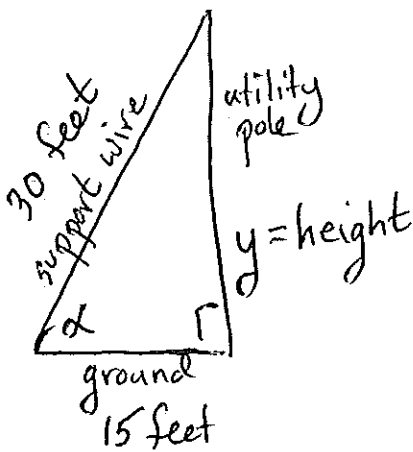 30 feet
support wire
utility
pole
y = height
α
ground
15 feet